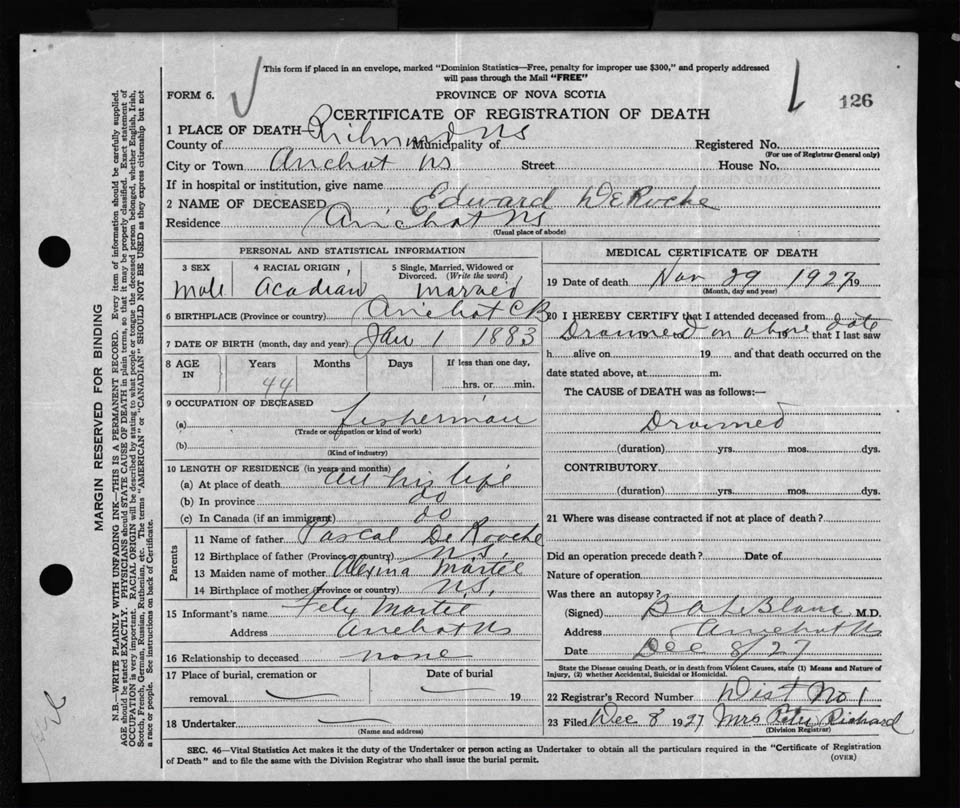 This form if placed in an envelope, marked "Dominion Statistics—Free, penalty for improper use $300," and properly addressed
will pass through the Mail "FREE"
FORM 6. PROVINCE OF NOVA SCOTIA
126
CERTIFICATE OF REGISTRATION OF DEATH
1 PLACE OF DEATH—
County of Richmond NS Municipality of Registered No.
(For use of Registrar General only)
City or Town Arichat NS Street House No.
If in hospital or institution, give name
2 NAME OF DECEASED Edward DeRoche
Residence Arichat NS
(Usual place of abode)
PERSONAL AND STATISTICAL INFORMATION
3 SEX 4 RACIAL ORIGIN 5 Single, Married, Widowed or Divorced. (Write the word)
Male Acadian married
6 BIRTHPLACE (Province or country) Arichat CB
7 DATE OF BIRTH (month, day and year) Jan 1 1883
8 AGE IN Years Months Days If less than one day,
44 hrs. or min.
9 OCCUPATION OF DECEASED
(a) fisherman
(Trade or occupation or kind of work)
(b)
(Kind of industry)
10 LENGTH OF RESIDENCE (in years and months)
(a) At place of death all his life
(b) In province do
(c) In Canada (if an immigrant) do
Parents
11 Name of father Pascal DeRoche
12 Birthplace of father (Province or country) N.S.
13 Maiden name of mother Alexina Martel
14 Birthplace of mother (Province or country) N.S.
15 Informant's name Felix Martel
Address Arichat NS
16 Relationship to deceased none
17 Place of burial, cremation or Date of burial
removal 19
18 Undertaker
(Name and address)
MEDICAL CERTIFICATE OF DEATH
19 Date of death Nov 29 1927 19
(Month, day and year)
20 I HEREBY CERTIFY that I attended deceased from
Drowned on above date 19 to 19 that I last saw
h alive on 19 and that death occurred on the
date stated above, at m.
The CAUSE of DEATH was as follows:—
Drowned
(duration) yrs. mos. dys.
CONTRIBUTORY
(duration) yrs. mos. dys.
21 Where was disease contracted if not at place of death?
Did an operation precede death? Date of
Nature of operation
Was there an autopsy?
(Signed) B A LeBlanc M.D.
Address Arichat NS
Date Dec 8/27
State the Disease causing Death, or in death from Violent Causes, state (1) Means and Nature of
Injury, (2) whether Accidental, Suicidal or Homicidal.
22 Registrar's Record Number Dist No 1
23 Filed Dec 8 1927 Mrs Peter Richard
(Division Registrar)
SEC. 46—Vital Statistics Act makes it the duty of the Undertaker or person acting as Undertaker to obtain all the particulars required in the "Certificate of Registration
of Death" and to file the same with the Division Registrar who shall issue the burial permit.
(OVER)
MARGIN RESERVED FOR BINDING
N.B.—WRITE PLAINLY WITH UNFADING INK—THIS IS A PERMANENT RECORD. Every item of information should be carefully supplied.
AGE should be stated EXACTLY. PHYSICIANS should STATE CAUSE OF DEATH in plain terms, so that it may be properly classified. Exact statement of
OCCUPATION is very important. RACIAL ORIGIN will be described by stating to what people or tongue the deceased person belonged, whether English, Irish,
Scotch, French, German, Russian, Ruthenian, etc. The terms "AMERICAN" or "CANADIAN" SHOULD NOT BE USED as they express citizenship but not
a race or people. See instructions on back of Certificate.